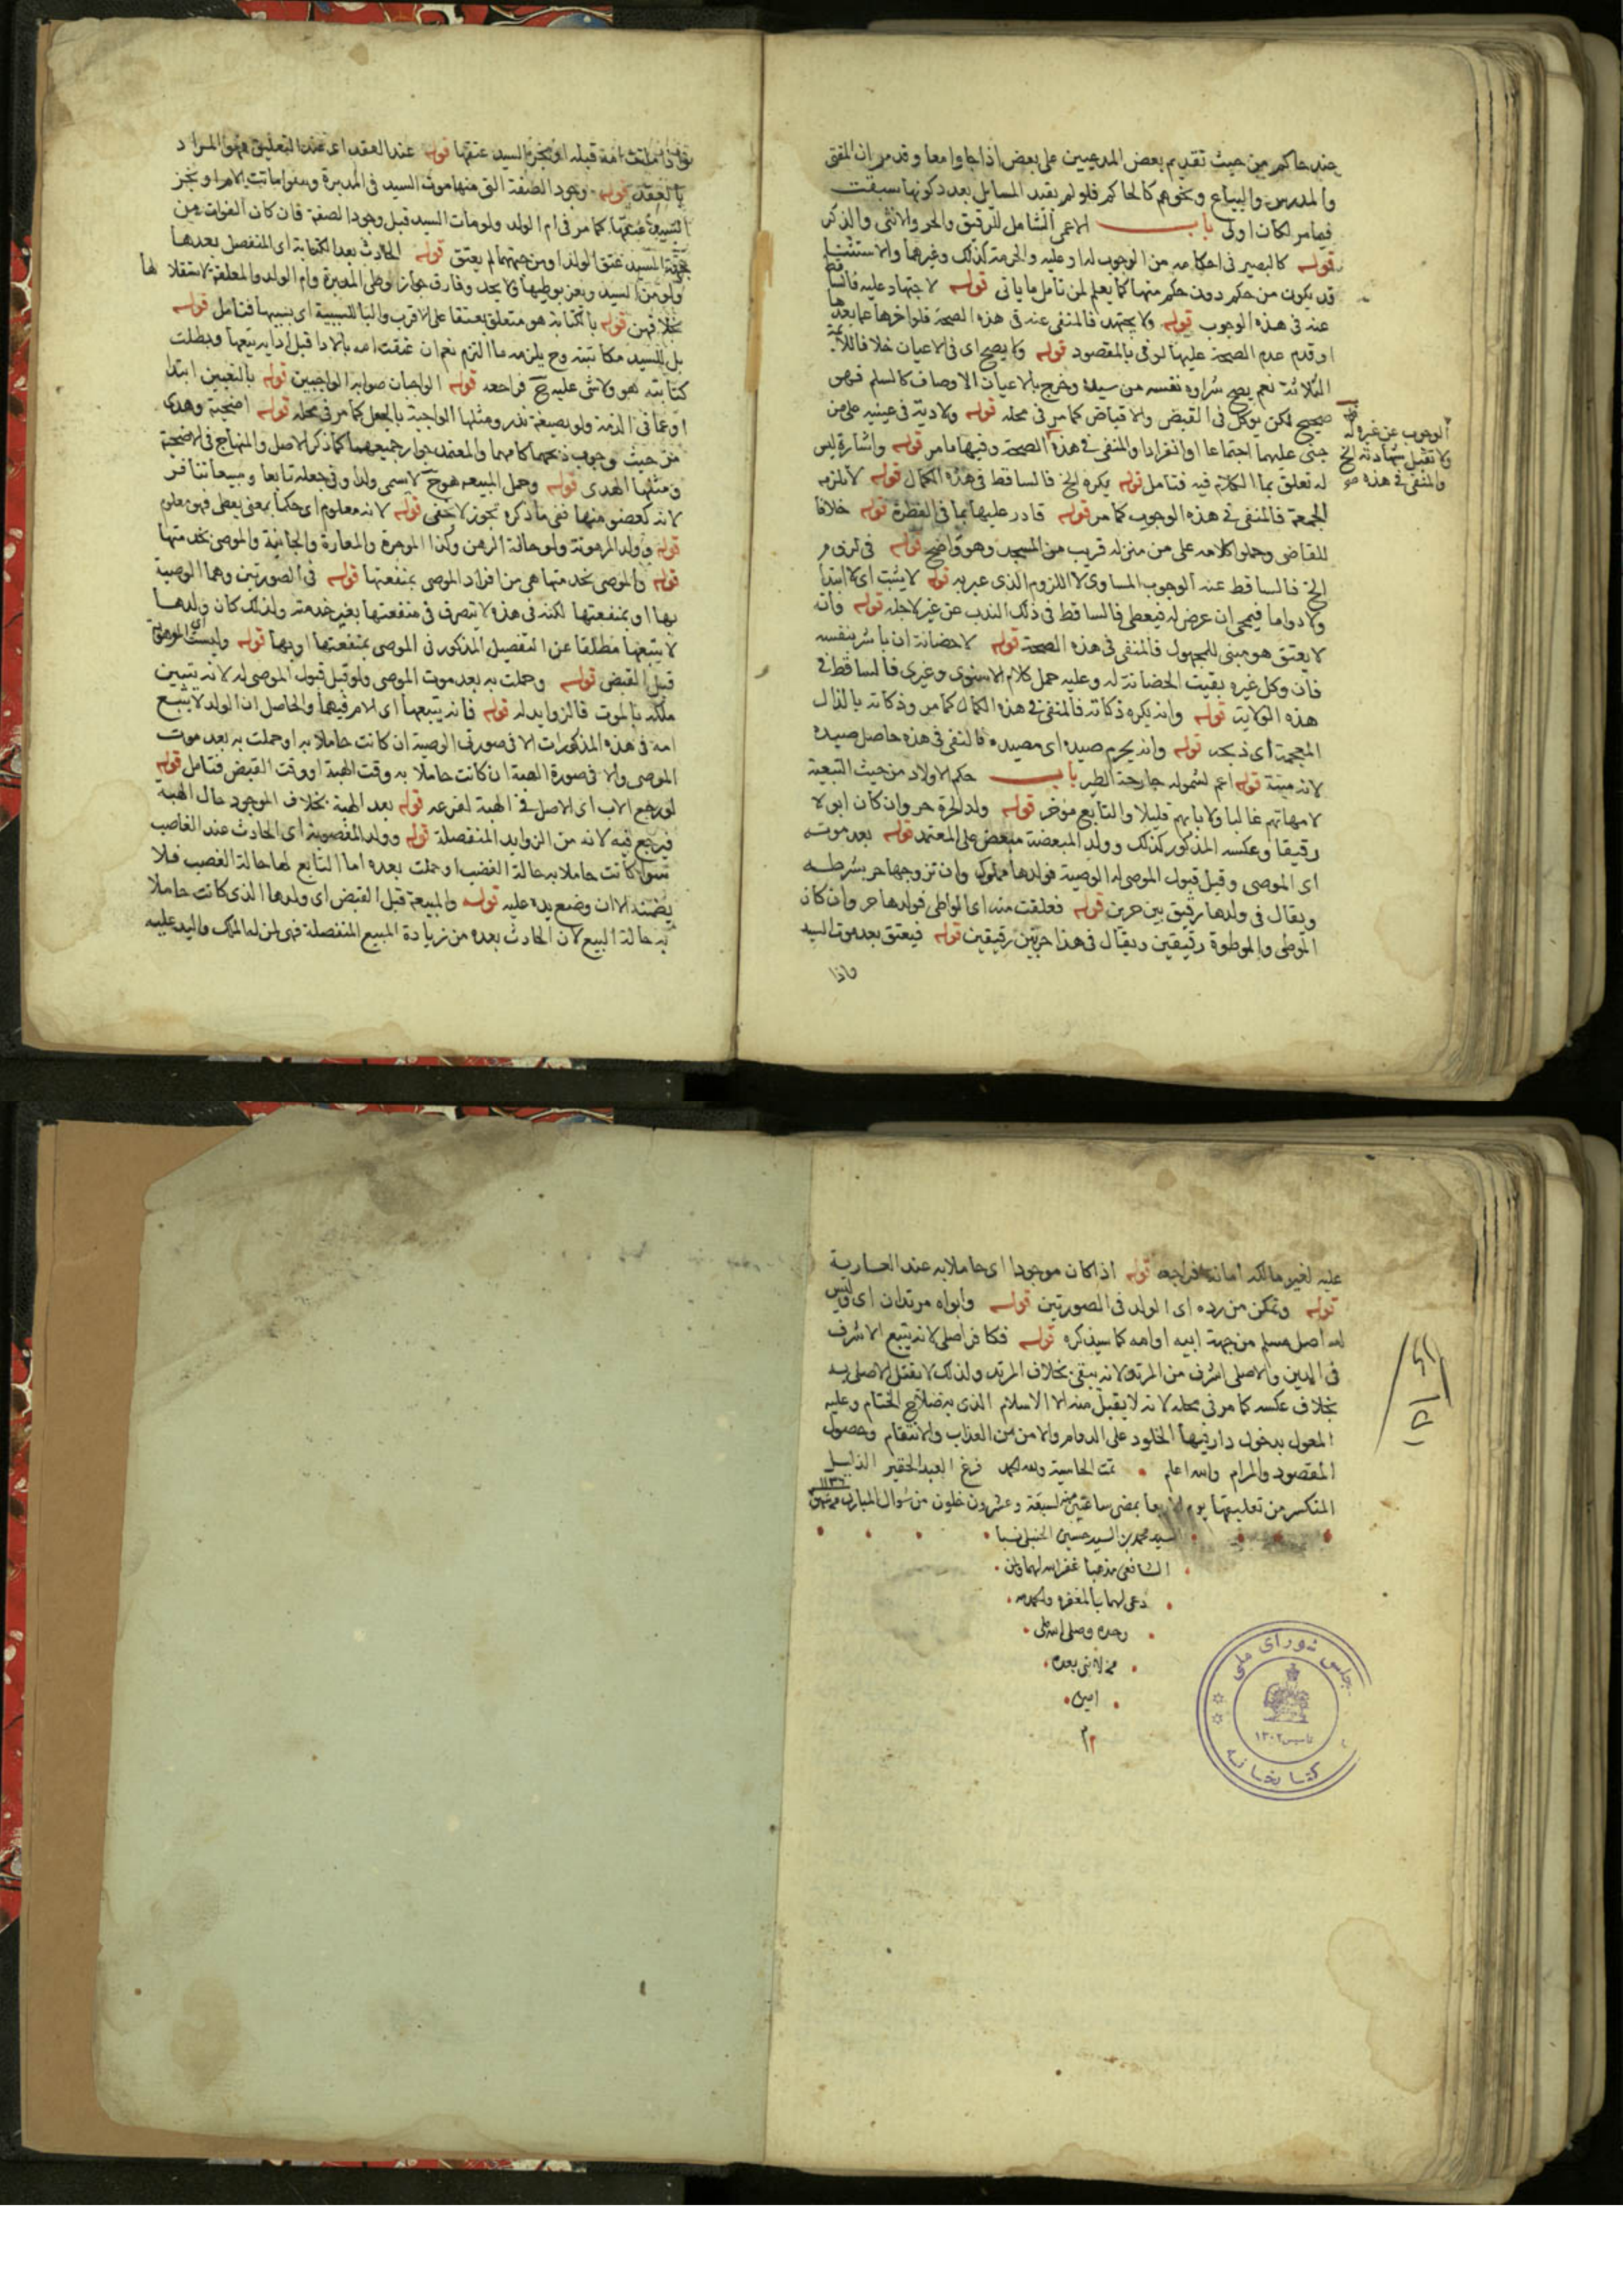 عند حاكم من حيث تقديم بعض المدعيين على بعض اذا جاوا معا وقد مر ان المفتى
والمدرس والبياع ونحوهم كالحاكم فلو لم يقيد المسايل بعدد كونها سبقت
فيما مر لكان اولى باب الاعمى الشامل للرقيق والحر والانثى والذكر
قوله كالبصير فى احكامه من الوجوب له او عليه والحرمة كذلك وغيرهما والاستثنا
قد يكون من حكم دون حكم منها كما يعلم لمن تامل ما ياتى قوله لا جهاد عليه فالساقط
عنه فى هذه الوجوب قوله ولا يجتهد فالمنفى عنه فى هذه الصحة فلو اخرها عما بعدها
او قدم عدم الصحة عليها لوفى بالمقصود قوله ولا يصح اى فى الاعيان خلافا للائمة
الثلاثة نعم يصح شراوه نفسه من سيده وخرج بالاعيان الاوصاف كالسلم فهو
صحيح لكن يوكل فى القبض والاقباض كما مر فى محله قوله ولا دية فى عينيه على من
جنى عليهما اجتماعا او انفرادا والمنفى فى هذه الصحة وفيها ما مر قوله واشارة ليس
الوجوب عن غيره له
ولا تقبل شهادته الخ
والمنفى فى هذه
له تعلق بما الكلام فيه فتامل قوله يكره الخ فالساقط فى هذه الكمال قوله لا تلزمه
الجمعة فالمنفى فى هذه الوجوب كما مر قوله قادر عليها بما فى الفطرة قوله خلافا
للقاضى وحملوا كلامه على من منزله قريب من المسجد وهو واضح قوله فى لزوم
الخ فالساقط عنه الوجوب المساوى لا اللزوم الذى عبر به قوله لا يثبت اى لا ابتدا
ولا دواما فيمحى ان عرض له فيعطى فالساقط فى ذلك الندب عن غير لاجله قوله وانه
لا يعتق هو مبنى للمجهول فالمنفى فى هذه الصحة قوله لا حضانة ان باشر بنفسه
فان وكل غيره بقيت الحضانة له وعليه حمل كلام الاسنوى وغيره فالساقط فى
هذه الولاية قوله وانه يكره ذكاته فالمنفى فى هذه الكمال كما مر وذكاته بالذال
المعجمة اى ذبحه قوله وانه يحرم صيده اى مصيده فالمنفى فى هذه حاصل صيده
لانه ميتة قوله اعم لشموله جارحة الطير باب حكم الاولاد من حيث التبعية
لامهاتهم غالبا ولابايهم قليلا والتابع موخر قوله ولد الحرة حر وان كان ابوه
رقيقا وعكسه المذكور كذلك وولد المبعضة مبعض على المعتمد قوله بعد موته
اى الموصى وقبل قبول الموصى له الوصية فولدها مملوك وان تزوجها حر بشرطه
ويقال فى ولدها رقيق بين حرين قوله فعلقت منه اى الواطى فولدها حر وان كان
الموطى والموطوة رقيقين ويقال فى هذا حر بين رقيقين قوله فيعتق بعد موت السيد
واذا
امه قبله او نجز السيد عتقها قوله عند العقد اى عند التعليق فهو المراد
بالعقد قوله وجود الصفة التى منها موت السيد فى المدبرة وسوا ماتت الام او نجز
السيد عتقها كما مر فى ام الولد ولو مات السيد قبل وجود الصفة فان كان الفوات من
جهة السيد عتق الولد او من جهتها لم يعتق قوله الحادث بعد الكتابة اى المنفصل بعدها
ولو من السيد ويعزر بوطيها ولا يحد وفارق جواز وطى المدبرة وام الولد والمعلقة لاستقلالها
بخلافهن قوله بالكتابة هو متعلق بعتقا على الاقرب والبا للسببية اى بسببها فتامل قوله
بل للسيد مكاتبته وح يلزمه ما التزم نعم ان عتقت امه بالادا قبل ادايه تبعها وبطلت
كتابته فهو ولا شى عليه ح فراجعه قوله الواجبات صوابه الواجبين قوله بالتعيين ابتدا
او عما فى الذمة ولو بصيغة نذر ومثلها الواجبة بالجعل كما مر فى محله قوله اضحية وهدى
من حيث وجوب ذبحهما كامهما والمعتمد جواز جميعهما كما ذكر الاصل والمنهاج فى الاضحية
ومثلها الهدى قوله وحمل المبيعة هو ح لا يسمى ولدا وفى جعله تابعا ومبيعا تنافر
لانه كعضو منها ففى ما ذكره تجوز لا يخفى قوله لانه معلوم اى حكما بمعنى يعطى فهو معلوم
قوله وولد المرهونة ولو حالة الرهن وكذا الموجرة والمعارة والجانية والموصى بخدمتها
قوله والموصى بخدمتها هى من افراد الموصى بمنفعتها قوله فى الصورتين وهما الوصية
بها او بمنفعتها لكنه فى هذه لا تصرف فى منفعتها بغير خدمته ولذلك كان ولدها
لا يتبعها مطلقا عن التفصيل المذكور فى الموصى بمنفعتها او بها قوله وليست الموهوبة
قبل القبض قوله وحملت به بعد موت الموصى ولو قبل قبول الموصى له لانه يتبين
ملكه بالموت فالزوايد له قوله فانه يتبعها اى الام فيهما والحاصل ان الولد لا يتبع
امه فى هذه المذكورات الا فى صورتى الوصية ان كانت حاملا به او حملت به بعد موت
الموصى والا فى صورة الهبة ان كانت حاملا به وقت الهبة او وقت القبض فتامل قوله
لو رجع الاب اى الاصل فى الهبة لفرعه قوله بعد الهبة بخلاف الموجود حال الهبة
فيرجع فيه لانه من الزوايد المنفصلة قوله وولد المغصوبة اى الحادث عند الغاصب
سوا كانت حاملا به حالة الغضب او حملت بعده اما التابع لها حالة الغصب فلا
يضمنه الا ان وضع يده عليه قوله والمبيعة قبل القبض اى ولدها الذى كانت حاملا
به حالة البيع لان الحادث بعده من زيادة المبيع المنفصلة فهى لمن له الملك واليد عليه
عليه لغير مالكه امانة فراجعه قوله اذا كان موجودا اى حاملا به عند العارية
قوله وتمكن من رده اى الولد فى الصورتين قوله وابواه مرتدان اى وليس
له اصل مسلم من جهة ابيه او امه كما سيذكره قوله فكافر اصلى لانه يتبع الاشرف
فى الدين والاصلى اشرف من المرتد لانه يبقى بخلاف المرتد ولذلك لا يقتل الاصلى به
بخلاف عكسه كما مر فى محله لانه لا يقبل منه الا الاسلام الذى به صلاح الختام وعليه
المعول بدخول دار فيها الخلود على الدوام والامن من العذاب والانتقام وحصول
المقصود والمرام والله اعلم تمت الحاشية ولله الحمد فرغ العبد الحقير الذليل
المنكسر من تعليقها يوم الاربعا بمضى ساعتين منه لسبعة وعشرون خلون من شوال المبارك
السيد محمد بن السيد حسين الحنبلى نسبا
الشافعى مذهبا غفر الله لهما ولمن
دعى لهما بالمغفره والحمد لله
وحده وصلى الله على
من لا نبى بعده
امين
م
مجلس شورای ملی
تاسیس ۱۳۰۲
کتابخانه